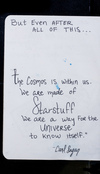 But Even AFTER
ALL OF THIS...
"the Cosmos is within us.
We are made of
Starstuff
We are a way for the
Universe
to know itself."
-Carl Sagan